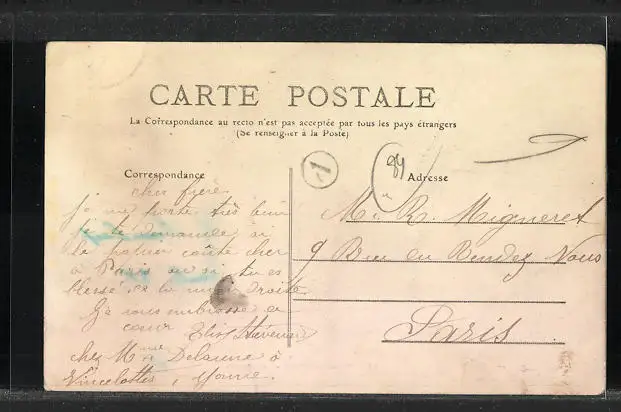 CARTE POSTALE
La Correspondance au recto n'est pas acceptée par tous les pays étrangers
(Se renseigner à la Poste)
Correspondance
cher frère
je me porte très bien
je te demande si
le papier coûte cher
à Paris ou si tu es
blessé de la main droite
Je vous embrasse de
cœur
chez Mme Delaune à
Vincelottes, Yonne.
1
84
Adresse
Mr R. Migneret
9 Rue du Rendez-Vous
Paris